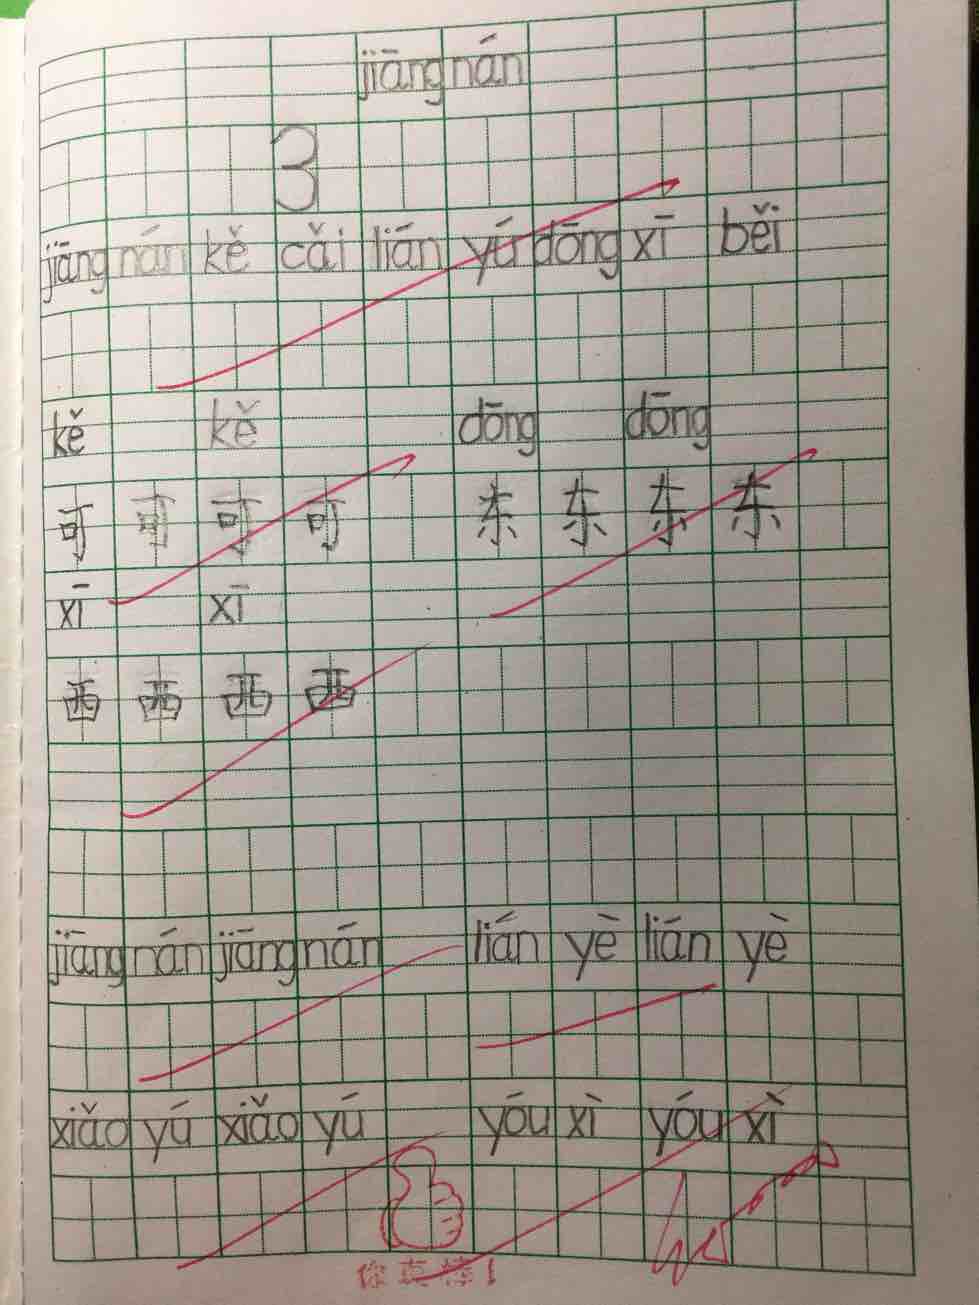 jiāng nán
3
jiāng nán kě cǎi lián yú dōng xī běi
kě kě dōng dōng
可 可 可 可 东 东 东 东
xī xī
西 西 西 西
jiāng nán jiāng nán lián yè lián yè
xiǎo yú xiǎo yú yóu xì yóu xì
你真棒!